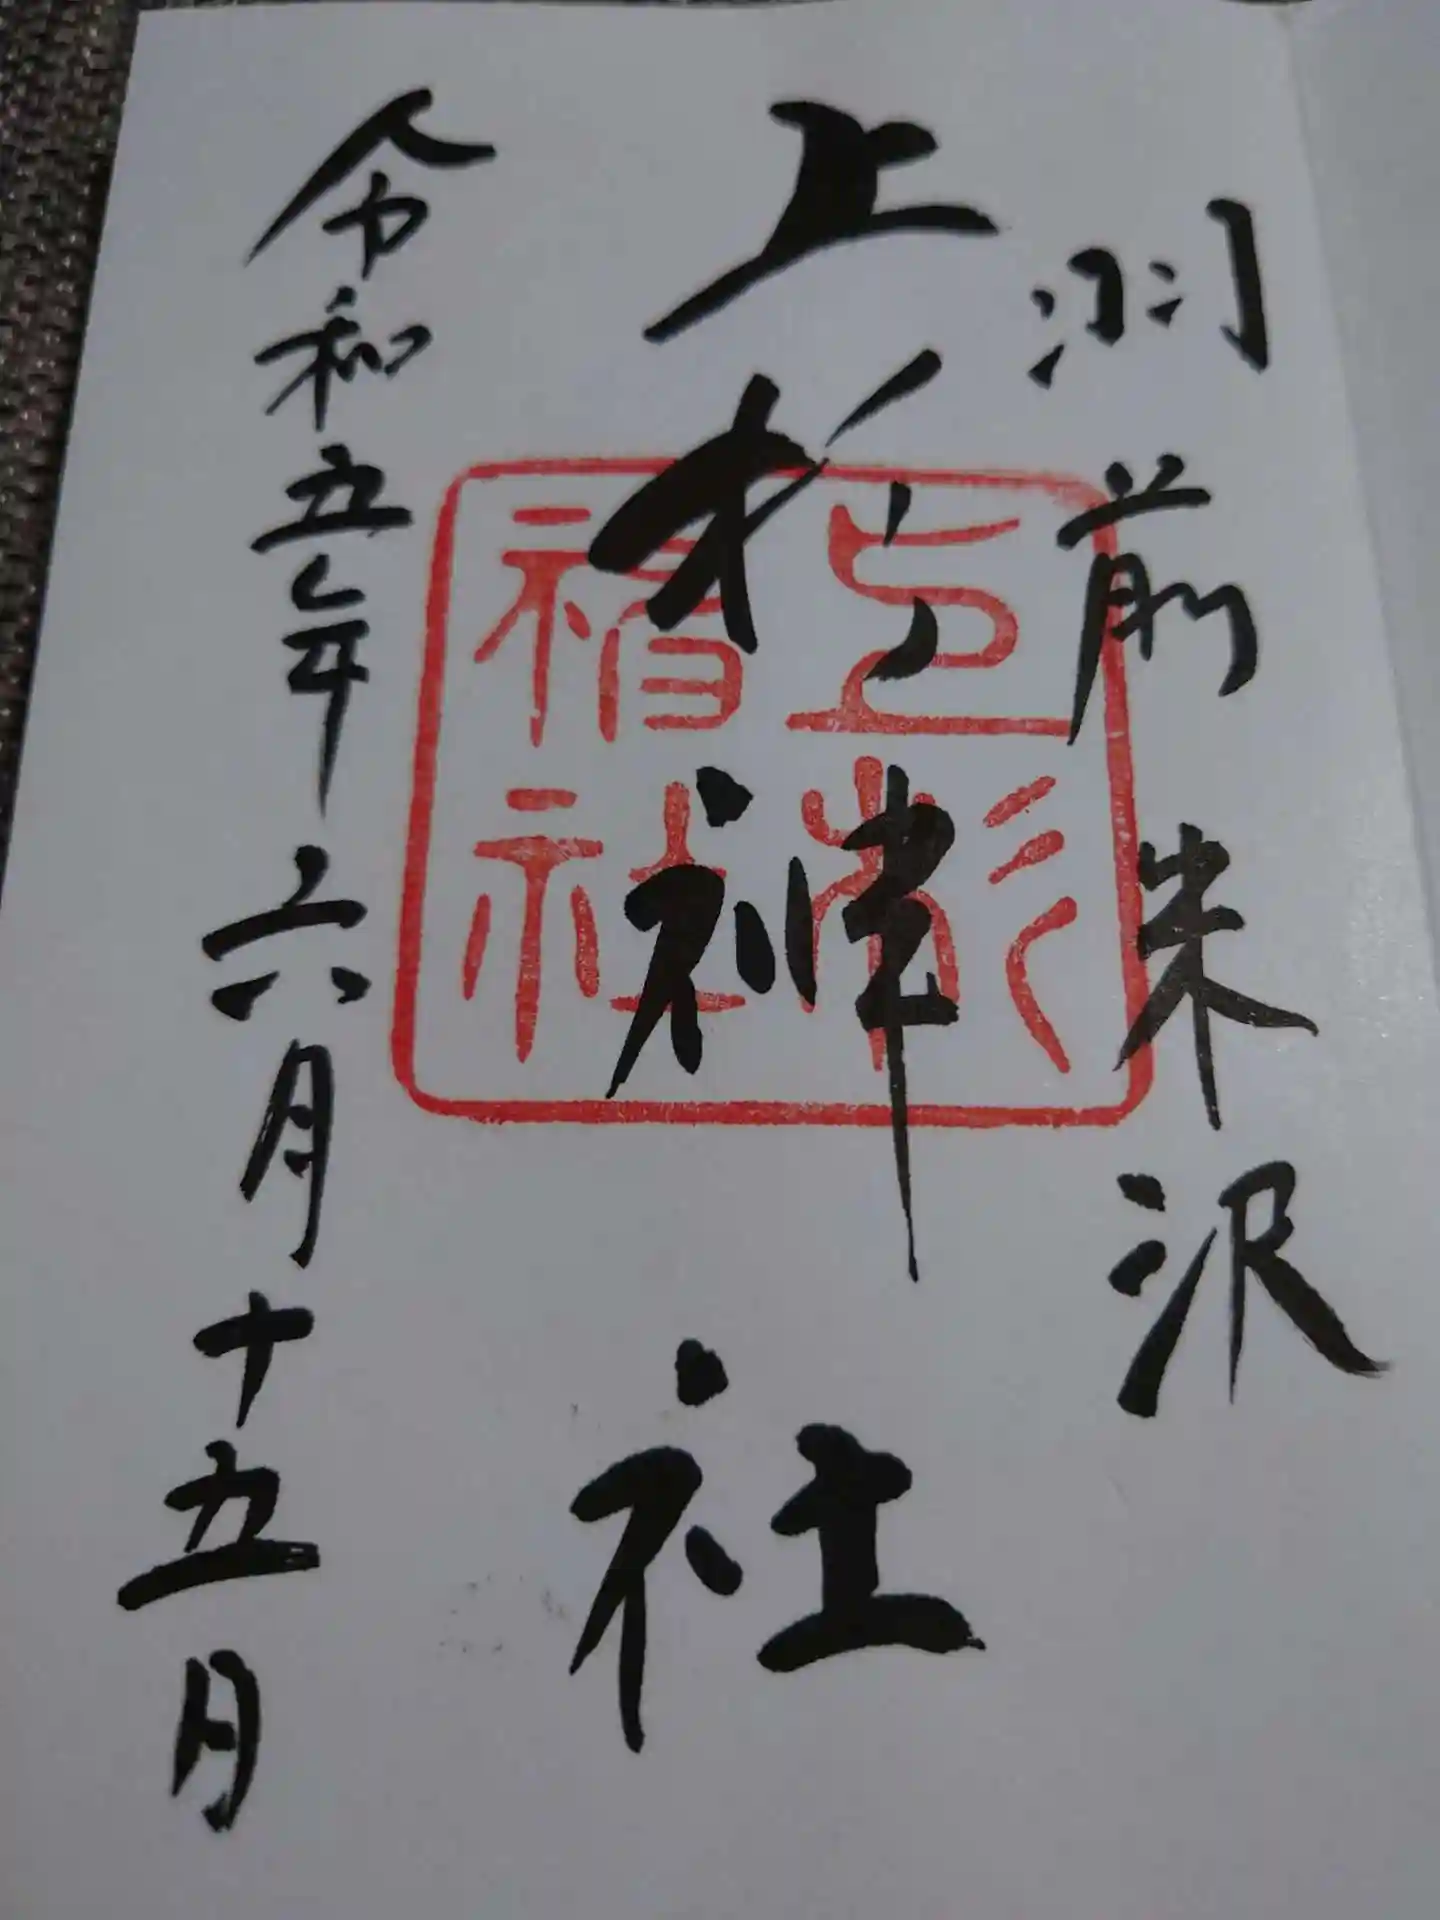 羽前米沢
上杉神社
上杉
神社
令和五年六月十五日